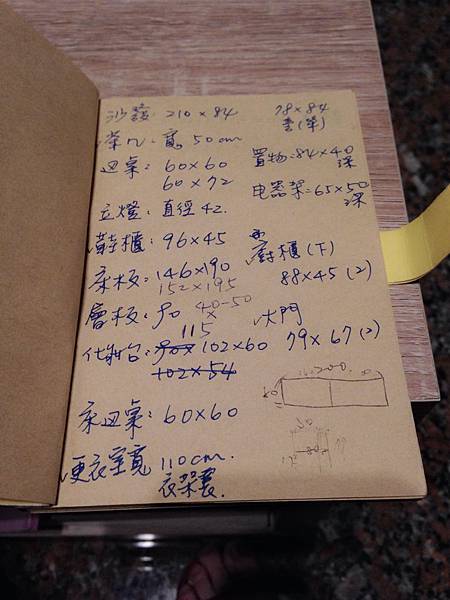 沙發: 210 x 84
78 x 84
茶几: 寬 50 cm
边桌: 60 x 60
60 x 72
置物: 84 x 40
深
电器架: 65 x 50
深
立燈: 直徑 42.
鞋櫃: 96 x 45
廚櫃 (下)
88 x 45 (2)
床板: 146 x 190
152 x 195
層板: 90 x 40-50
大門
79 x 67 (2)
115
化妝台: 90x 102 x 60
102 x 54
200
60
床边桌: 60 x 60
更衣室寬 110 cm.
衣架裏.